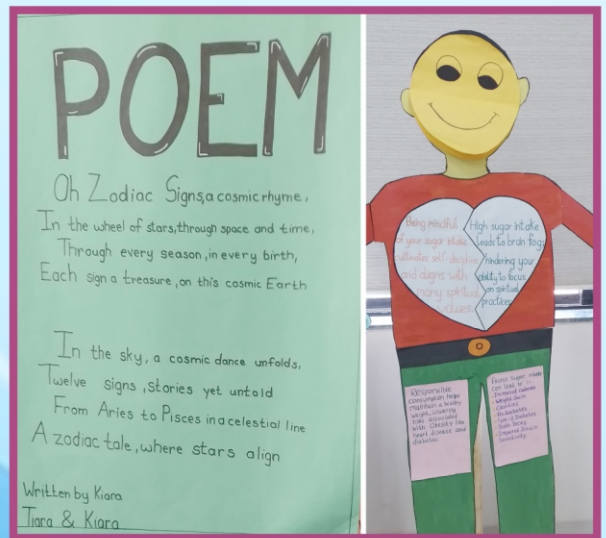 POEM
Oh Zodiac Signs, a cosmic rhyme,
In the wheel of stars, through space and time,
Through every season, in every birth,
Each sign a treasure, on this cosmic Earth
In the sky, a cosmic dance unfolds,
Twelve signs, stories yet untold
From Aries to Pisces in a celestial line
A zodiac tale, where stars align
Written by Kiara
Tiara & Kiara
Being mindful
of your sugar intake
cultivates self-discipline
and aligns with
many spiritual
values.
High sugar intake
leads to brain fog,
hindering your
ability to focus
on spiritual
practices
Responsible
consumption helps
maintain a healthy
weight, lowering
risks associated
with Obesity like
heart disease and
diabetes.
Excess sugar intake
can lead to :-
Increased calories
Weight Gain
Obesities
Prediabetes
Type-2 Diabetes
Tooth Decay
Impaired Insulin
Sensitivity.